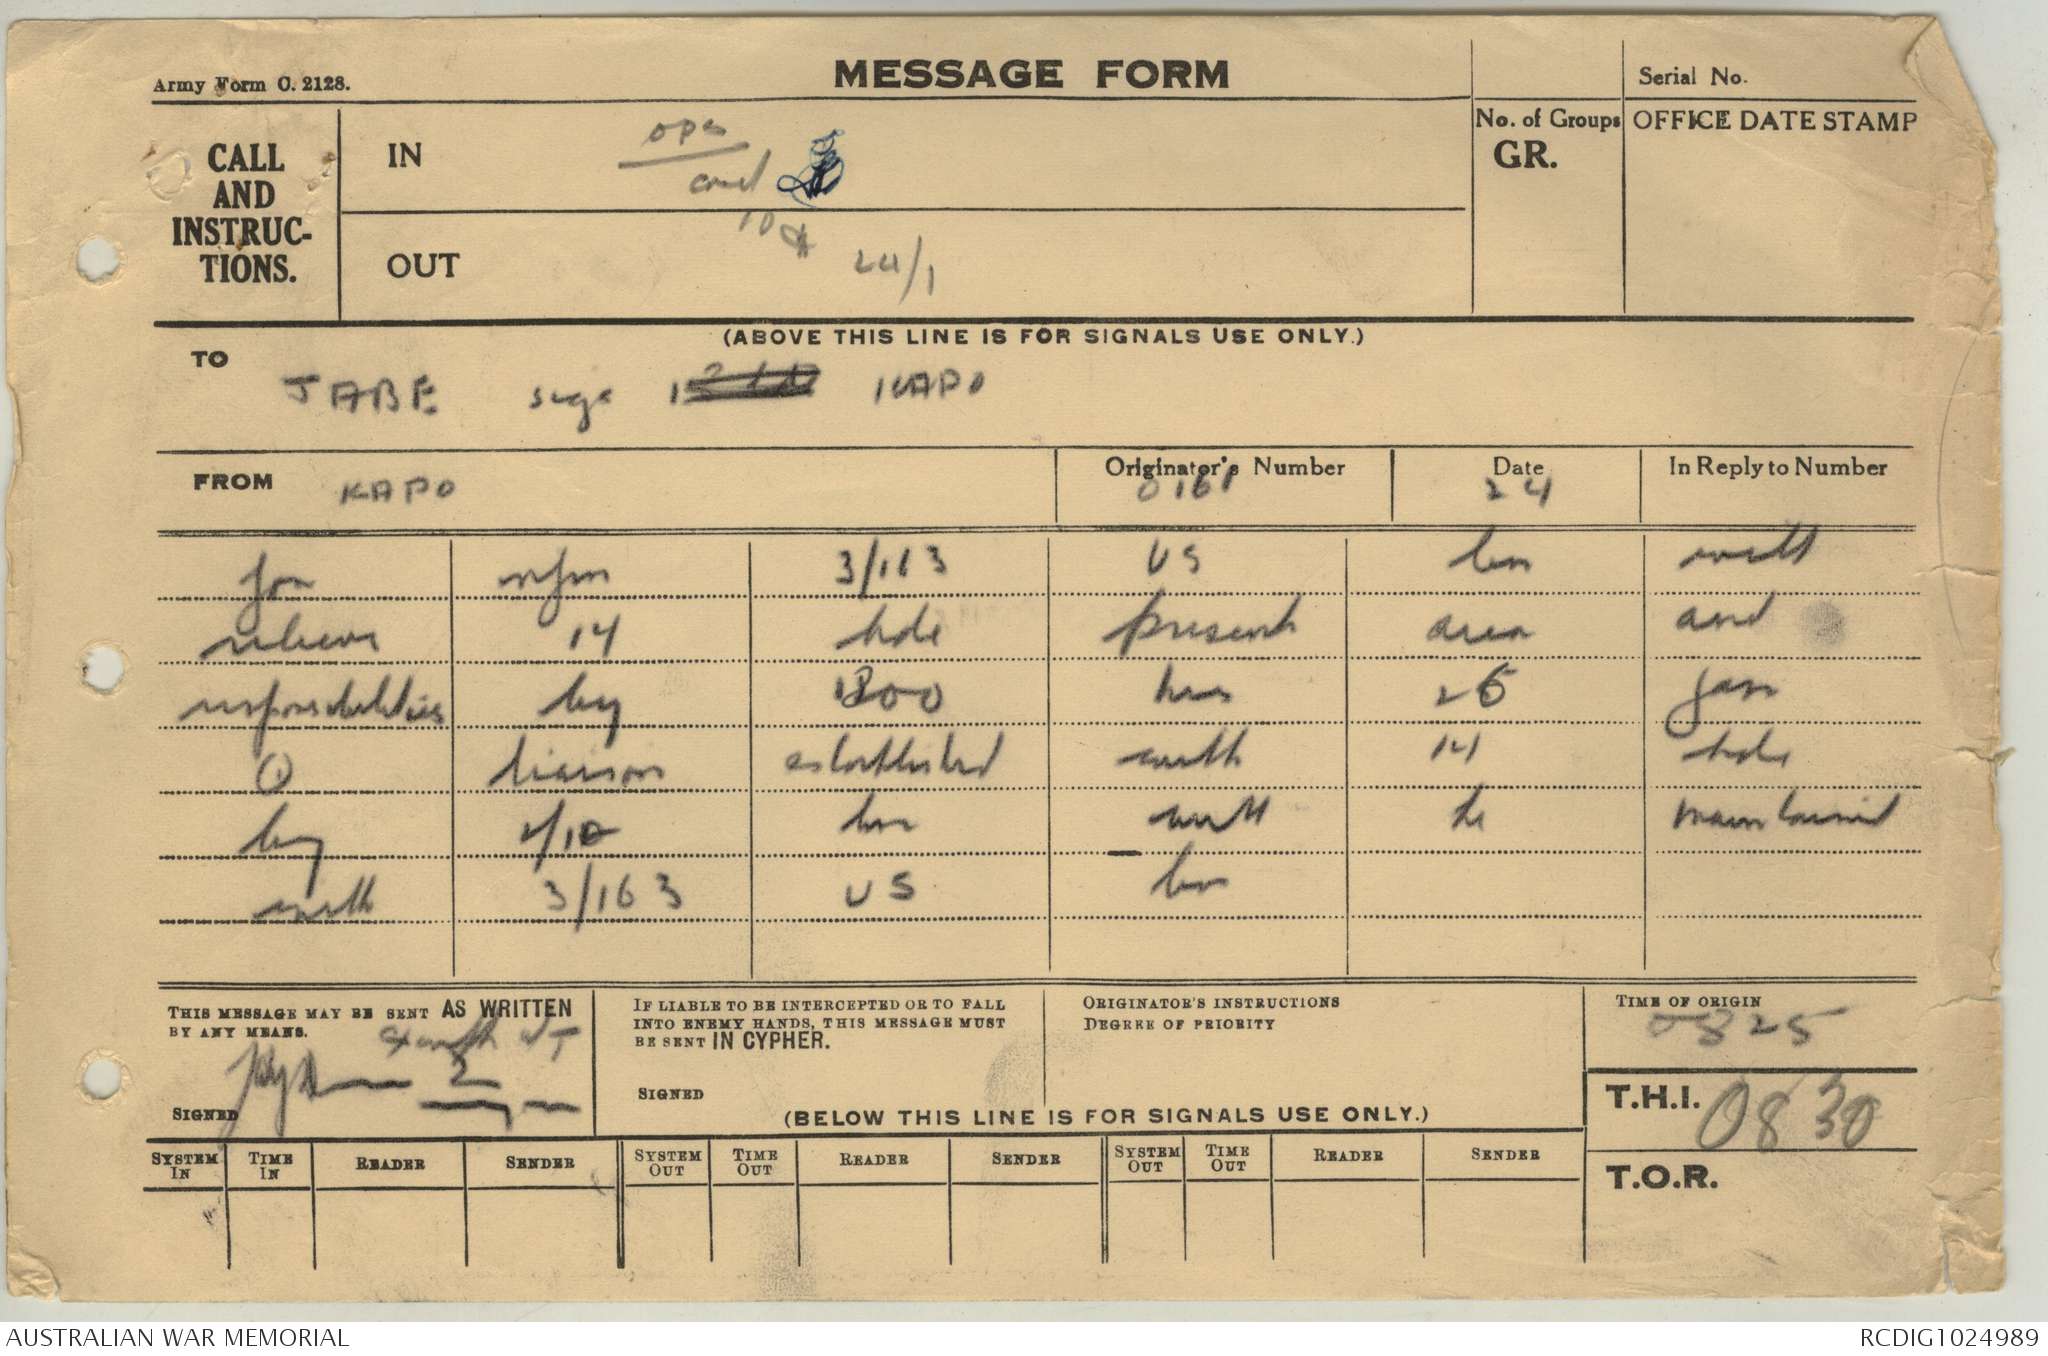 Army Form C. 2128.
MESSAGE FORM
Serial No.
CALL
AND
INSTRUC-
TIONS.
IN
ops
No. of Groups
GR.
OFFICE DATE STAMP
OUT
24/1
(ABOVE THIS LINE IS FOR SIGNALS USE ONLY.)
TO
JABE sigs KAPO
FROM KAPO
Originator's Number
0161
Date
24
In Reply to Number
for infm 3/163 US bn will
relieve 14 bde present area and
responsibilities by 1800 hrs 25 Jan
O liaison established with 14 bde
by 2/10 bn will be maintained
with 3/163 US bn
THIS MESSAGE MAY BE SENT AS WRITTEN
BY ANY MEANS.
except W/T
SIGNED
IF LIABLE TO BE INTERCEPTED OR TO FALL
INTO ENEMY HANDS, THIS MESSAGE MUST
BE SENT IN CYPHER.
SIGNED
ORIGINATOR'S INSTRUCTIONS
DEGREE OF PRIORITY
TIME OF ORIGIN
0825
T.H.I. 0830
(BELOW THIS LINE IS FOR SIGNALS USE ONLY.)
SYSTEM IN
TIME IN
READER
SENDER
SYSTEM OUT
TIME OUT
READER
SENDER
SYSTEM OUT
TIME OUT
READER
SENDER
T.O.R.
AUSTRALIAN WAR MEMORIAL
RCDIG1024989